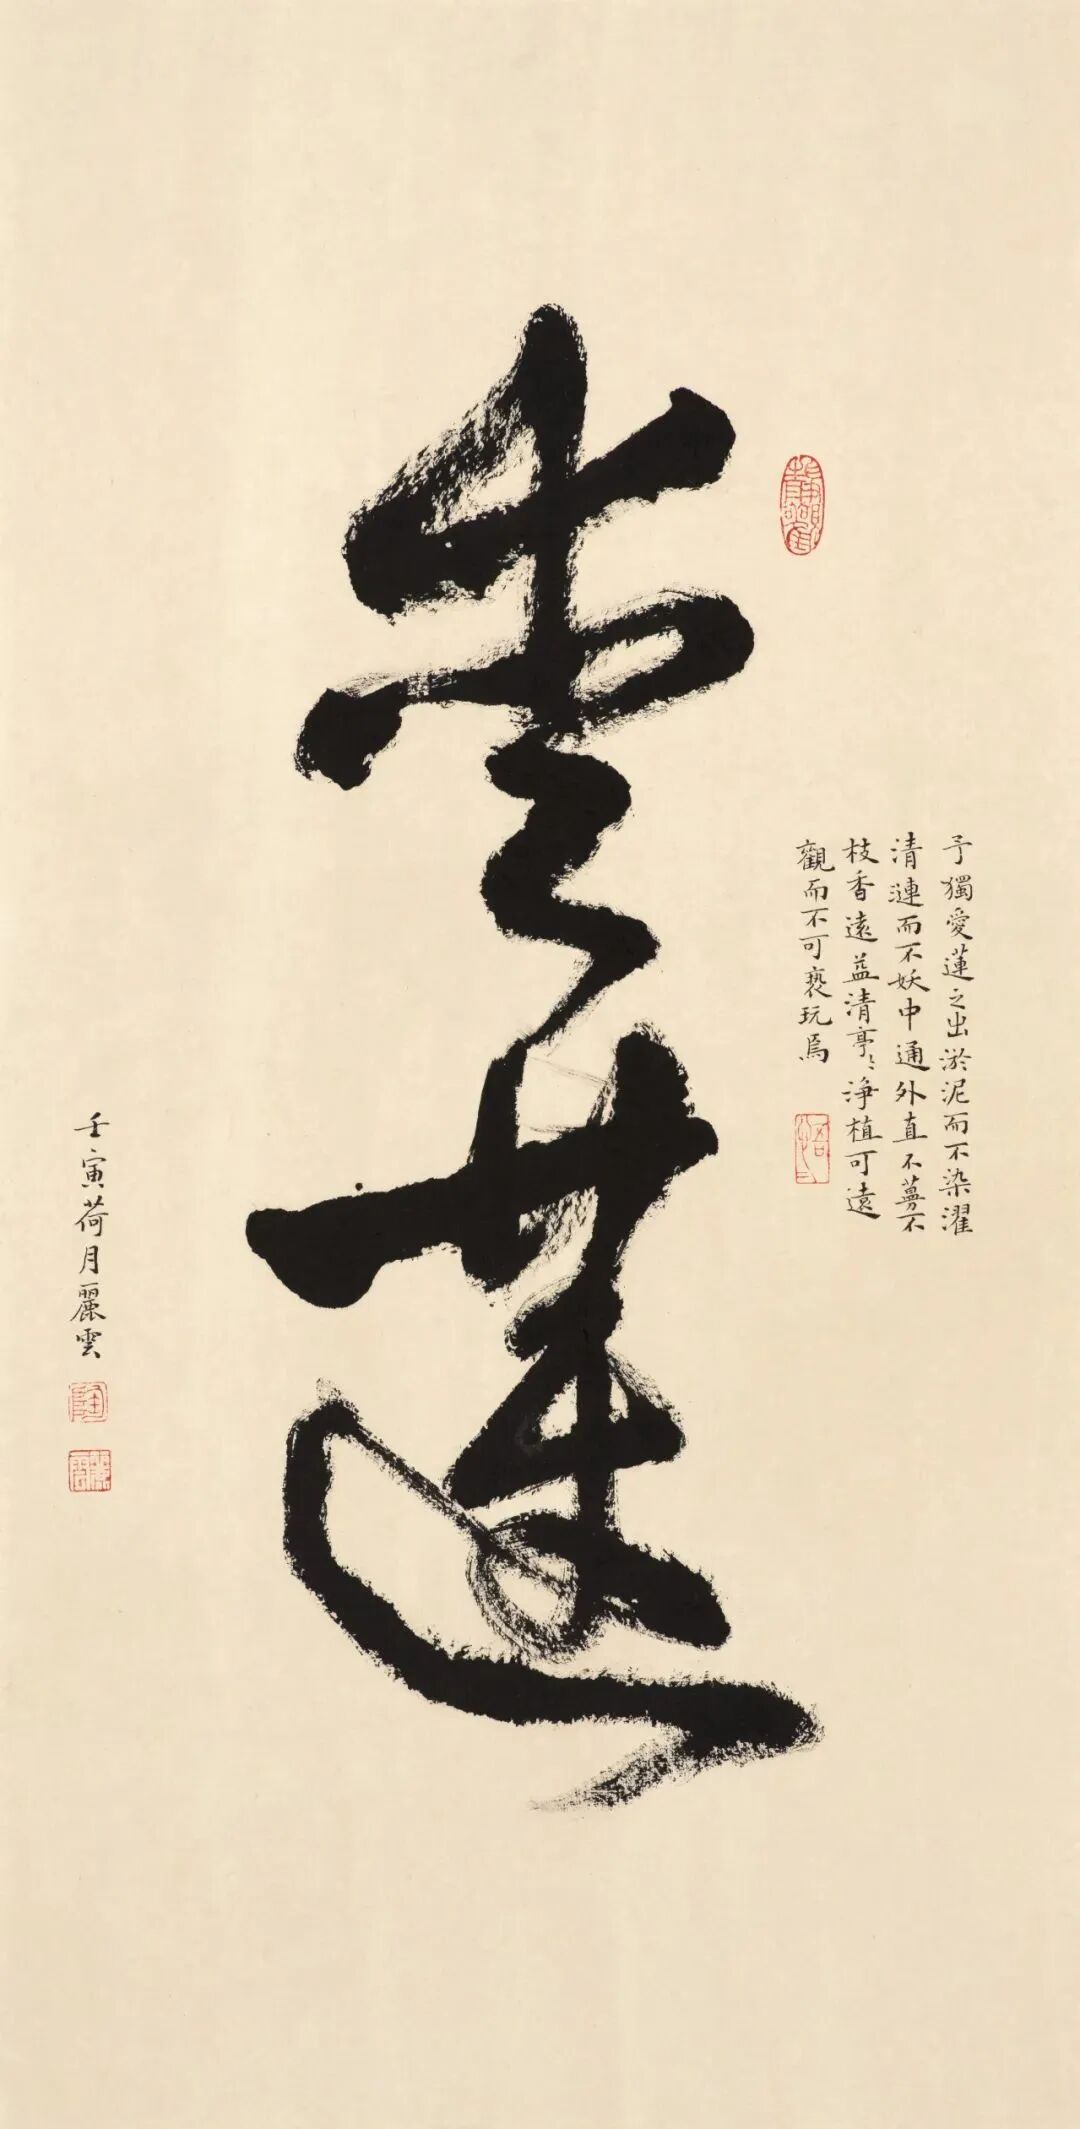 愛蓮
予獨愛蓮之出淤泥而不染濯
清漣而不妖中通外直不蔓不
枝香遠益清亭〻淨植可遠
觀而不可褻玩焉
壬寅荷月麗雲
陶
麗雲